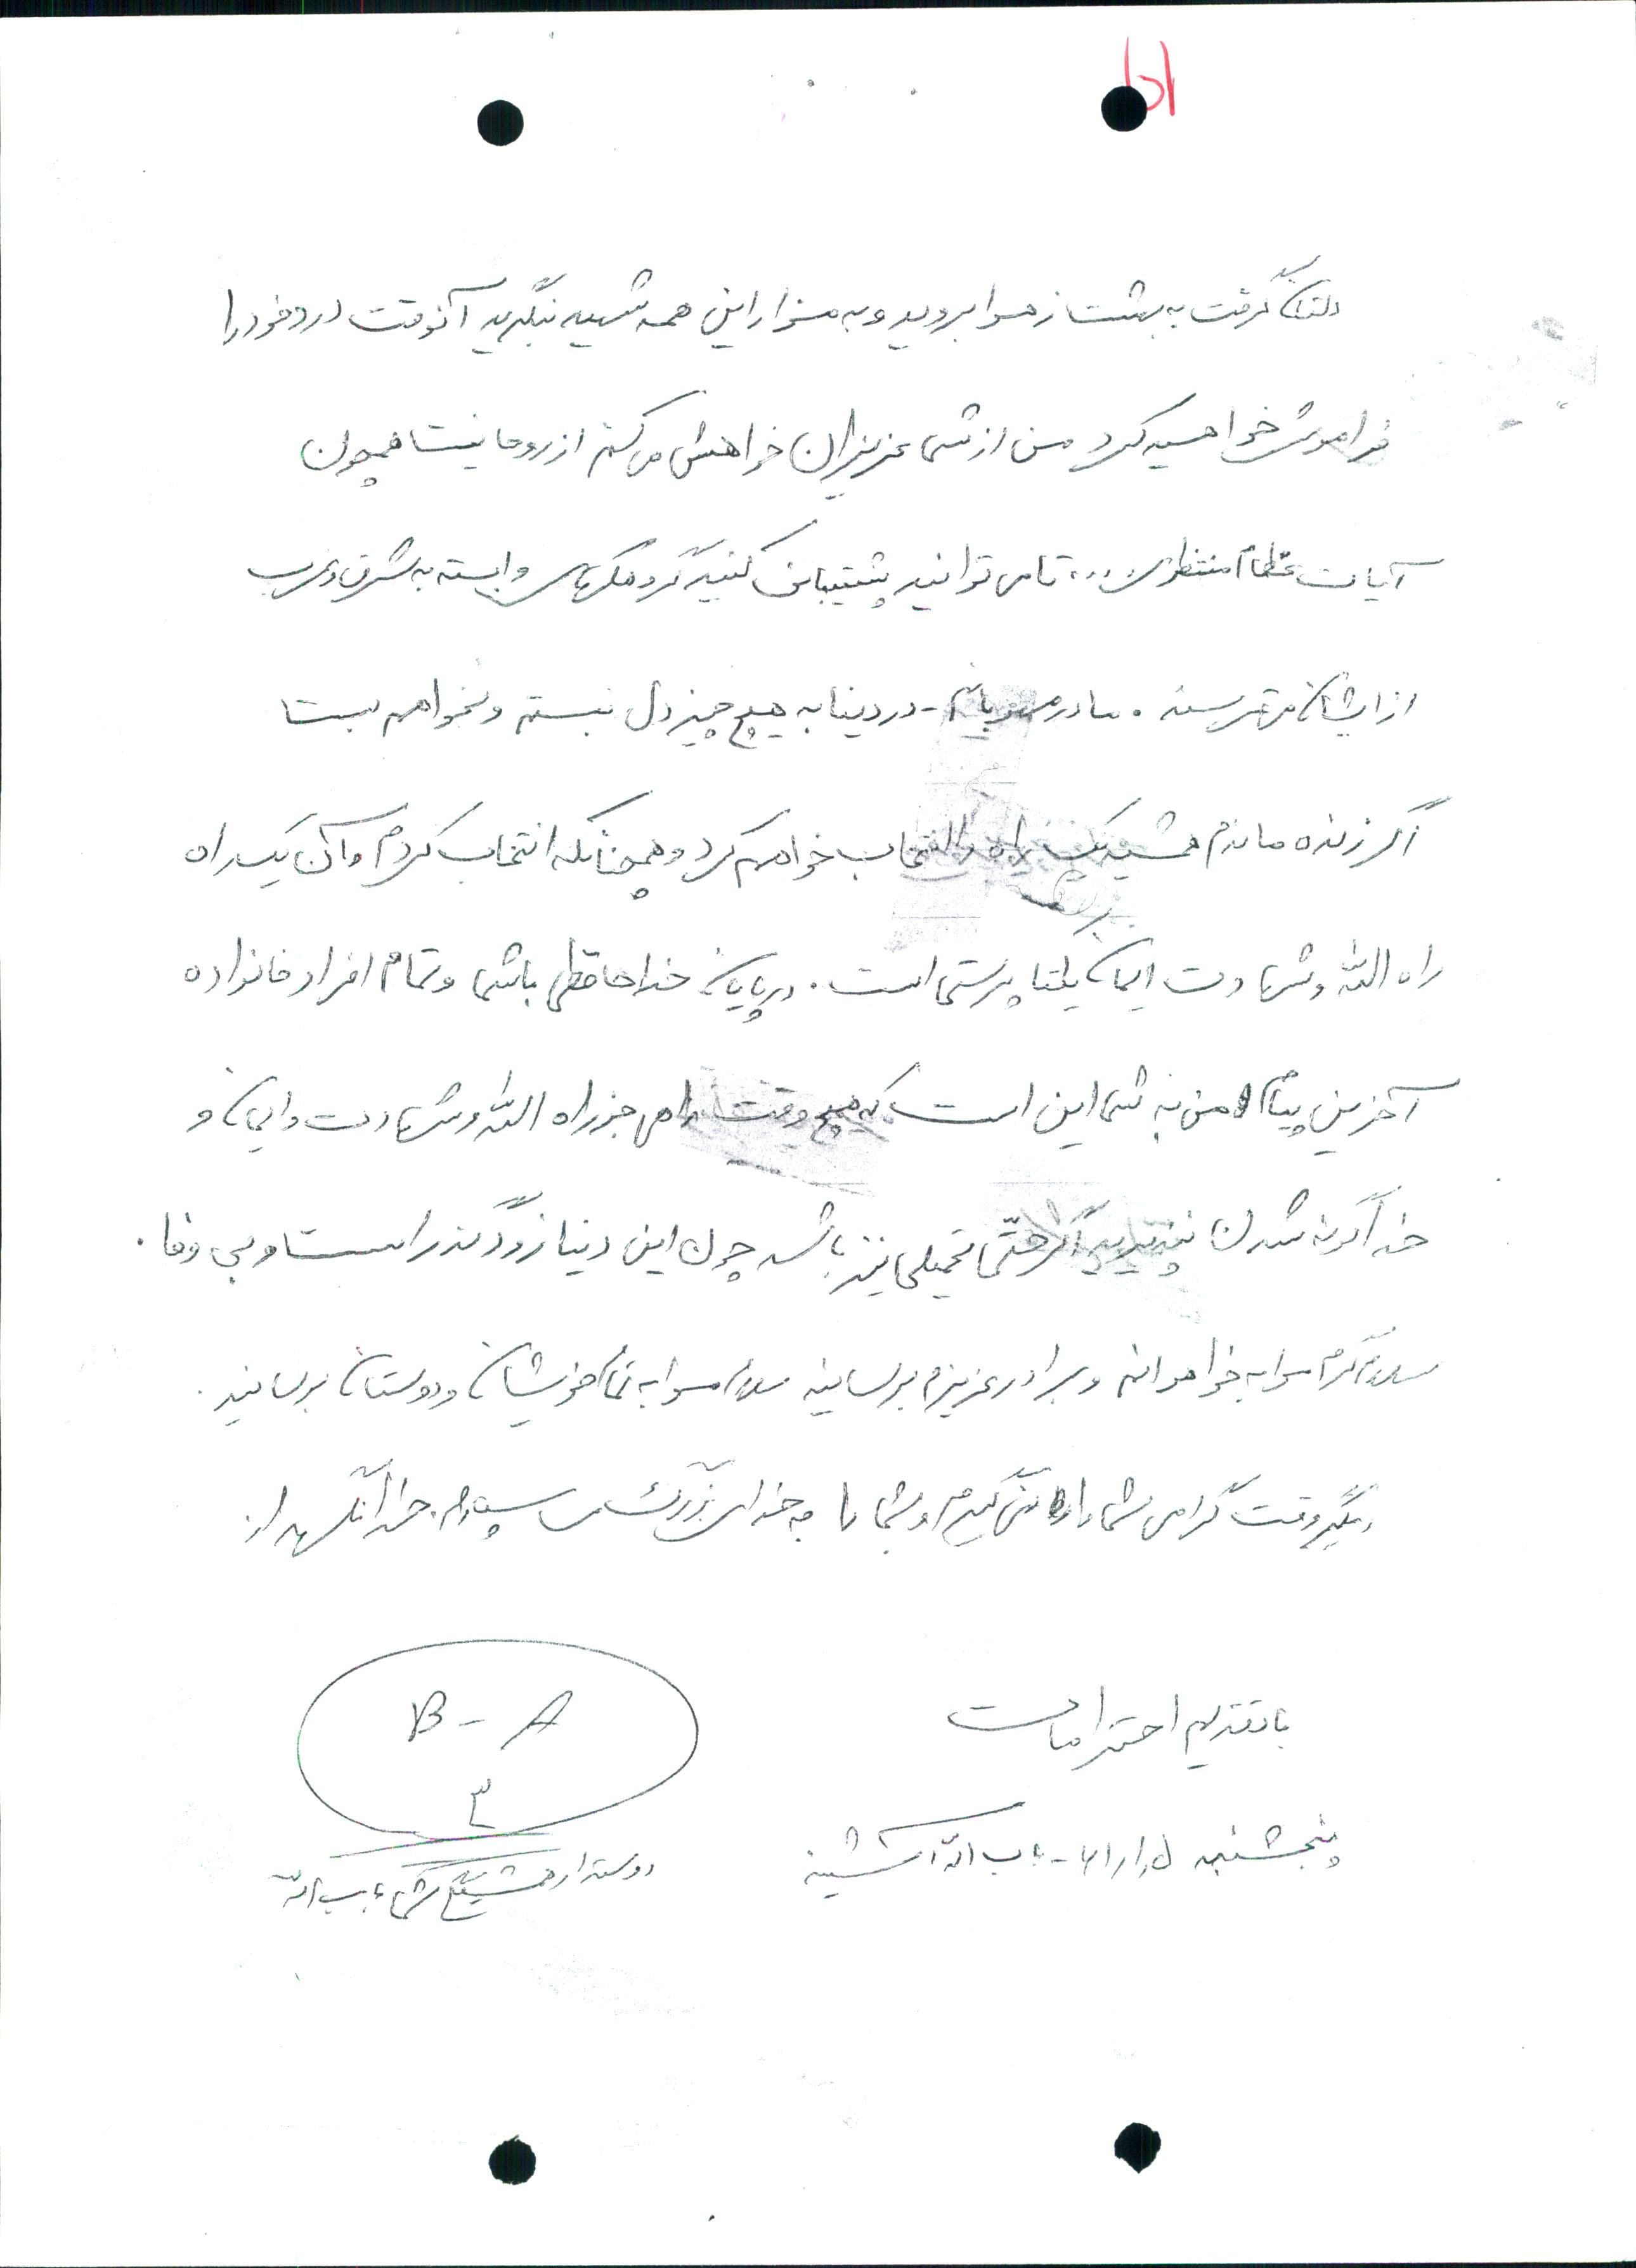 دلتان گرفت به بهشت زهرا بروید و به مزار این همه شهید بنگرید آنوقت درد خود را
فراموش خواهید کرد من از شما عزیزان خواهش می‌کنم از روحانیت همچون
آیات عظام منتظری و ... تا می توانید پشتیبانی کنید گروهکهای وابسته به شرق و غرب
از ایشان می‌ترسند . مادر مهربانم - در دنیا به هیچ چیز دل نبستم و نخواهم بست
اگر زنده ماندم همیشه یک راه را انتخاب خواهم کرد و همچنانکه انتخاب کردم و آن یک راه
راه الله و شهادت ایمان یکتا پرستی است . در پایان خداحافظی با شما و تمام افراد خانواده
آخرین پیام من به شما این است که هیچ وقت راهی جز راه الله و شهادت و ایمان و
خداگونه شدن نپذیرید اگر حتما تحمیلی نیز باشد چون این دنیا زودگذر است و بی وفا .
سلام گرم مرا به خواهرانم و برادر عزیزم برسانید سلام مرا به تمام خویشان و دوستان برسانید .
دیگر وقت گرامی شما را نمی گیرم و شما را به خدای بزرگ می سپارم خدانگهدار
با تقدیم احترامات
B - A
۳
پنجشنبه باب اله
دوستدار همیشگی شما باب اله